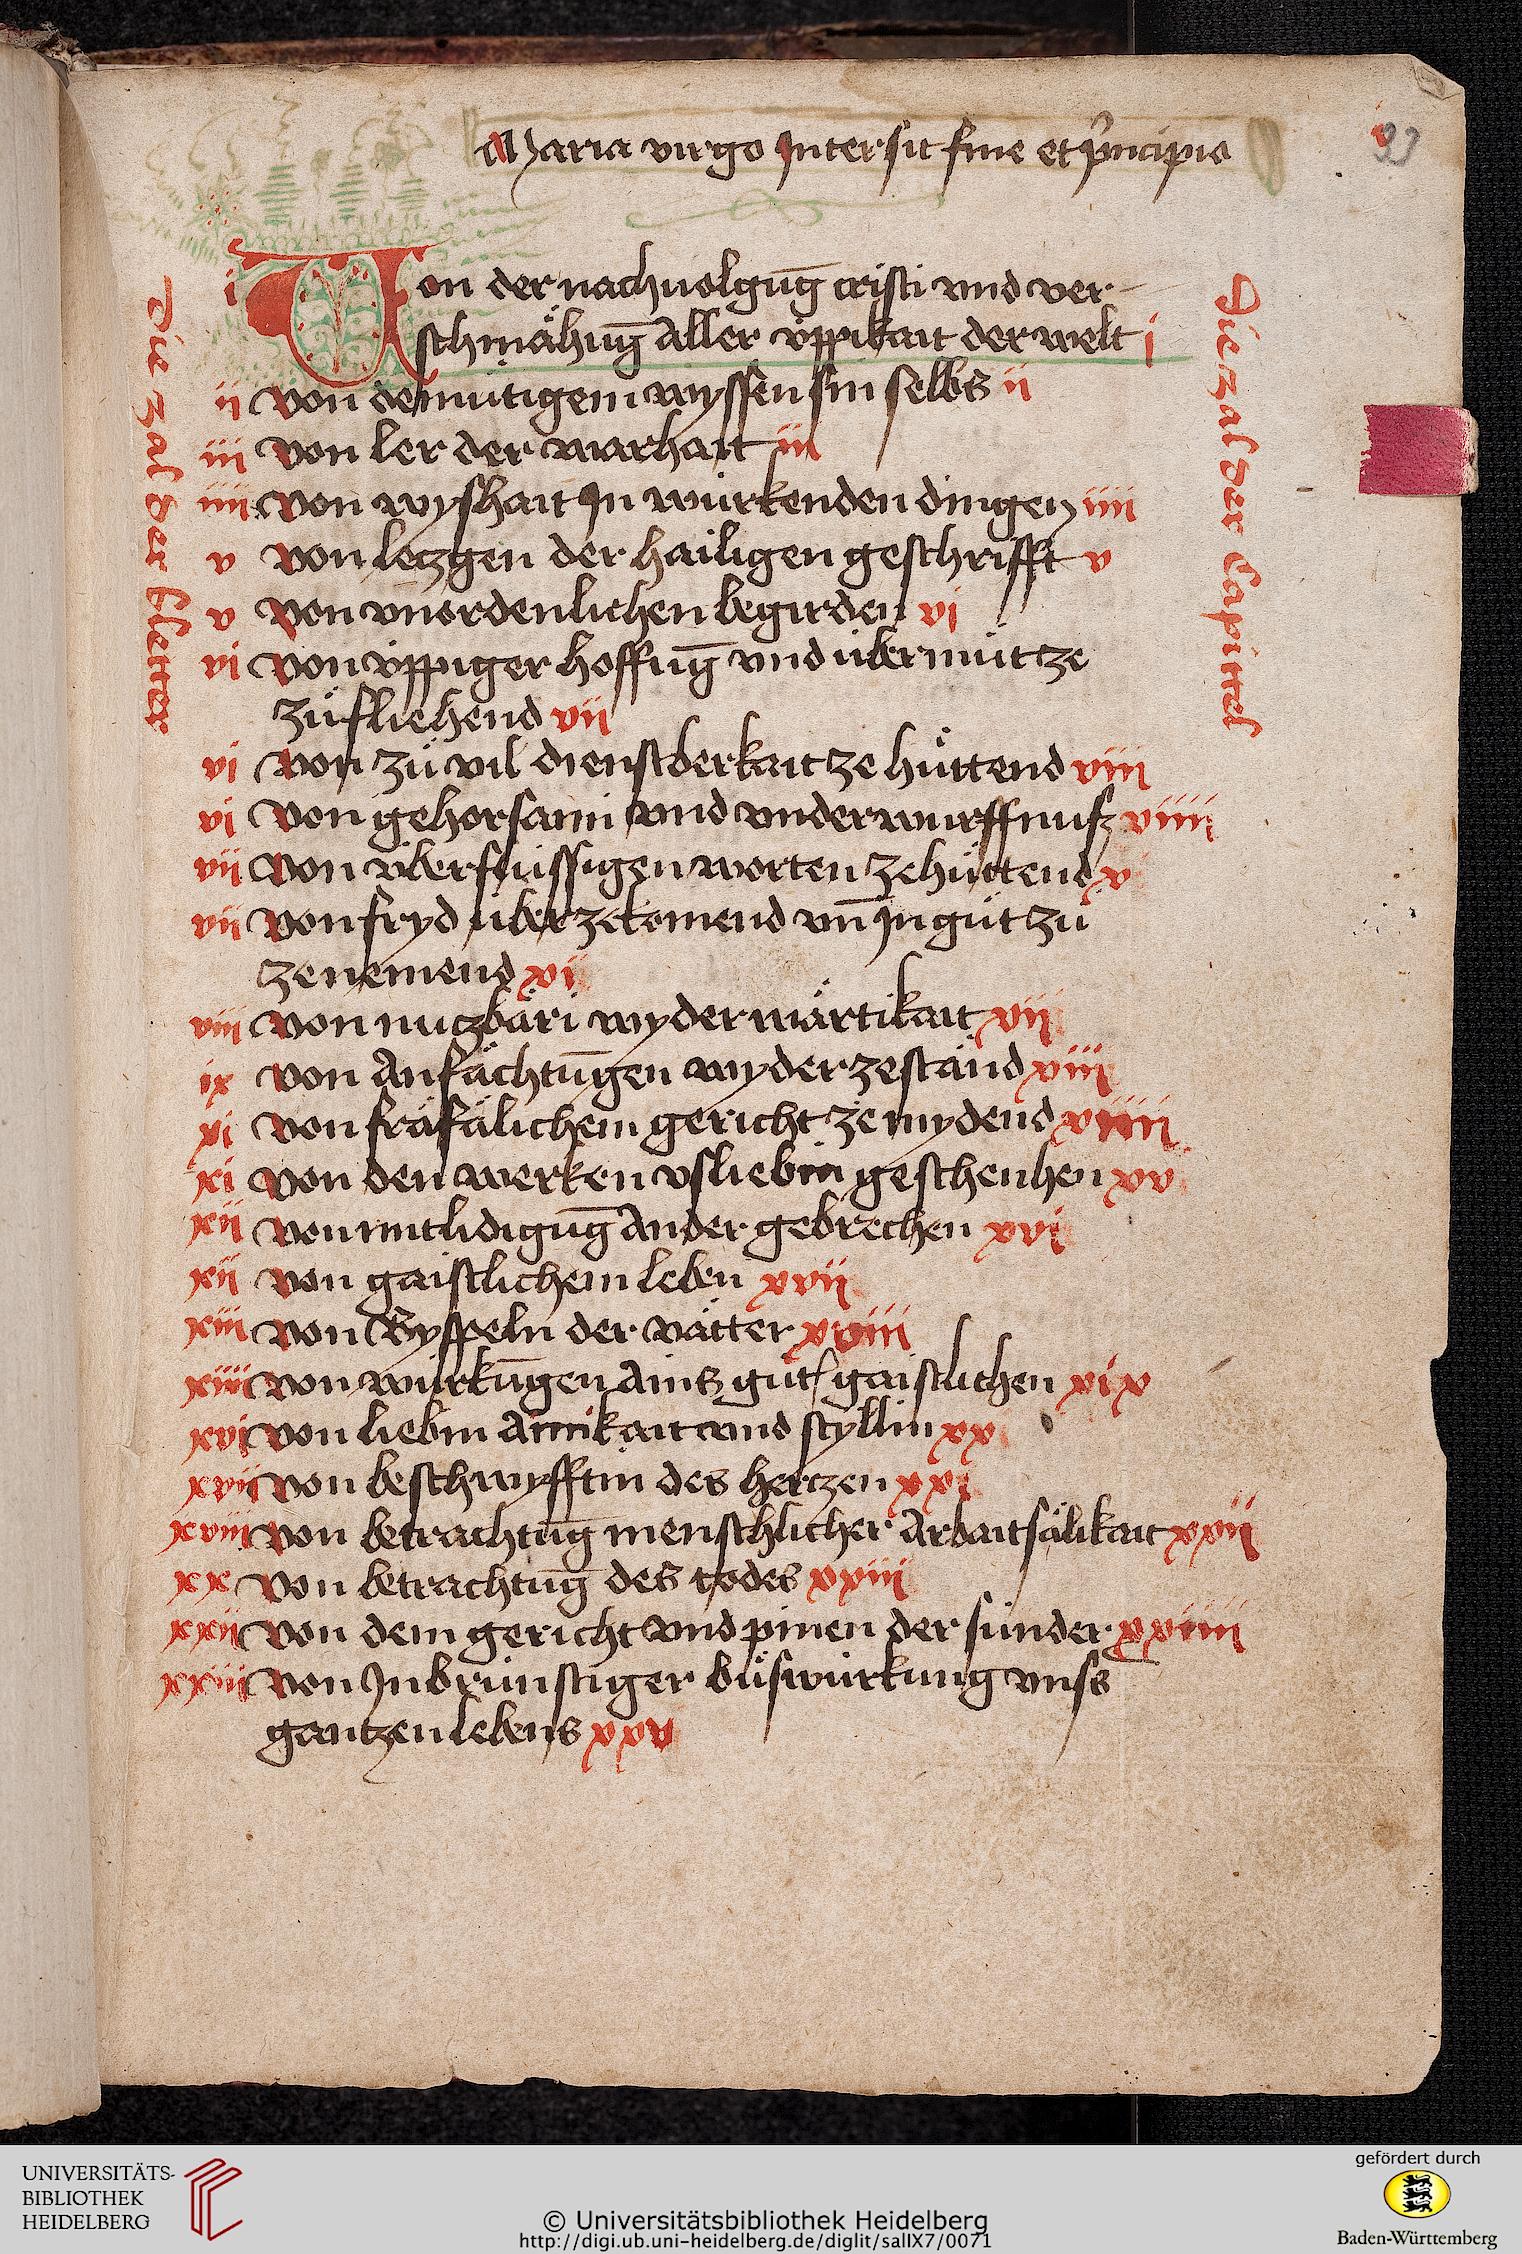 Maria virgo Intersit fine et principio
33
i Von der nachuolgūg cristi vnd ver-
schmähūg Aller v̈ppikait der welt i
ii von demütigem wyssen sin selbs ii
iii von ler der warhait iii
iiii von wyshait In würkenden dingen iiii
v von letzgen der hailigen geschrifft v
v von vnordenlichen begirden vi
vi von v̈ppiger hoffnūg vnd übermüt ze
zü fliehend vii
vi von zü vil dienstberkait ze hüttend viii
vi von gehorsami vnd vnderwurffnusz viiii
vii von überflüssigen worten ze hüttend x
vii von fryd überzekomend vn̄ In güt zü
zenemend xi
viii von nutzbäri wyderwärtikait xii
ix von Anfächtūgen wyderzeständ xiii
ix von fräfälichem gericht ze mydend xiiii
xi von den werken vs liebin geschenhen xv
xii von mitlidigūg Ander gebrechen xvi
xii von gaistlichem leben xvii
xiii von Byspeln der vätter xviii
xiiii von würkūgen Ains güt gaistlichen xix
xvi von liebin Ainikait vnd styllin xx
xvii von beschwyfftin des hertzen xxi
xviii von betrachtūg menschlicher Arbaitsälikait xxii
xx von betrachtūg des todes xxiii
xxii von dem gericht vnd pinen der sünder xxiiii
xxiii von Inbrünstiger büswürkung vnss
gantzen lebens xxv
Die zal der bletter
Die zal der Capittel
UNIVERSITÄTS-
BIBLIOTHEK
HEIDELBERG
© Universitätsbibliothek Heidelberg
http://digi.ub.uni-heidelberg.de/diglit/salIX7/0071
gefördert durch
Baden-Württemberg